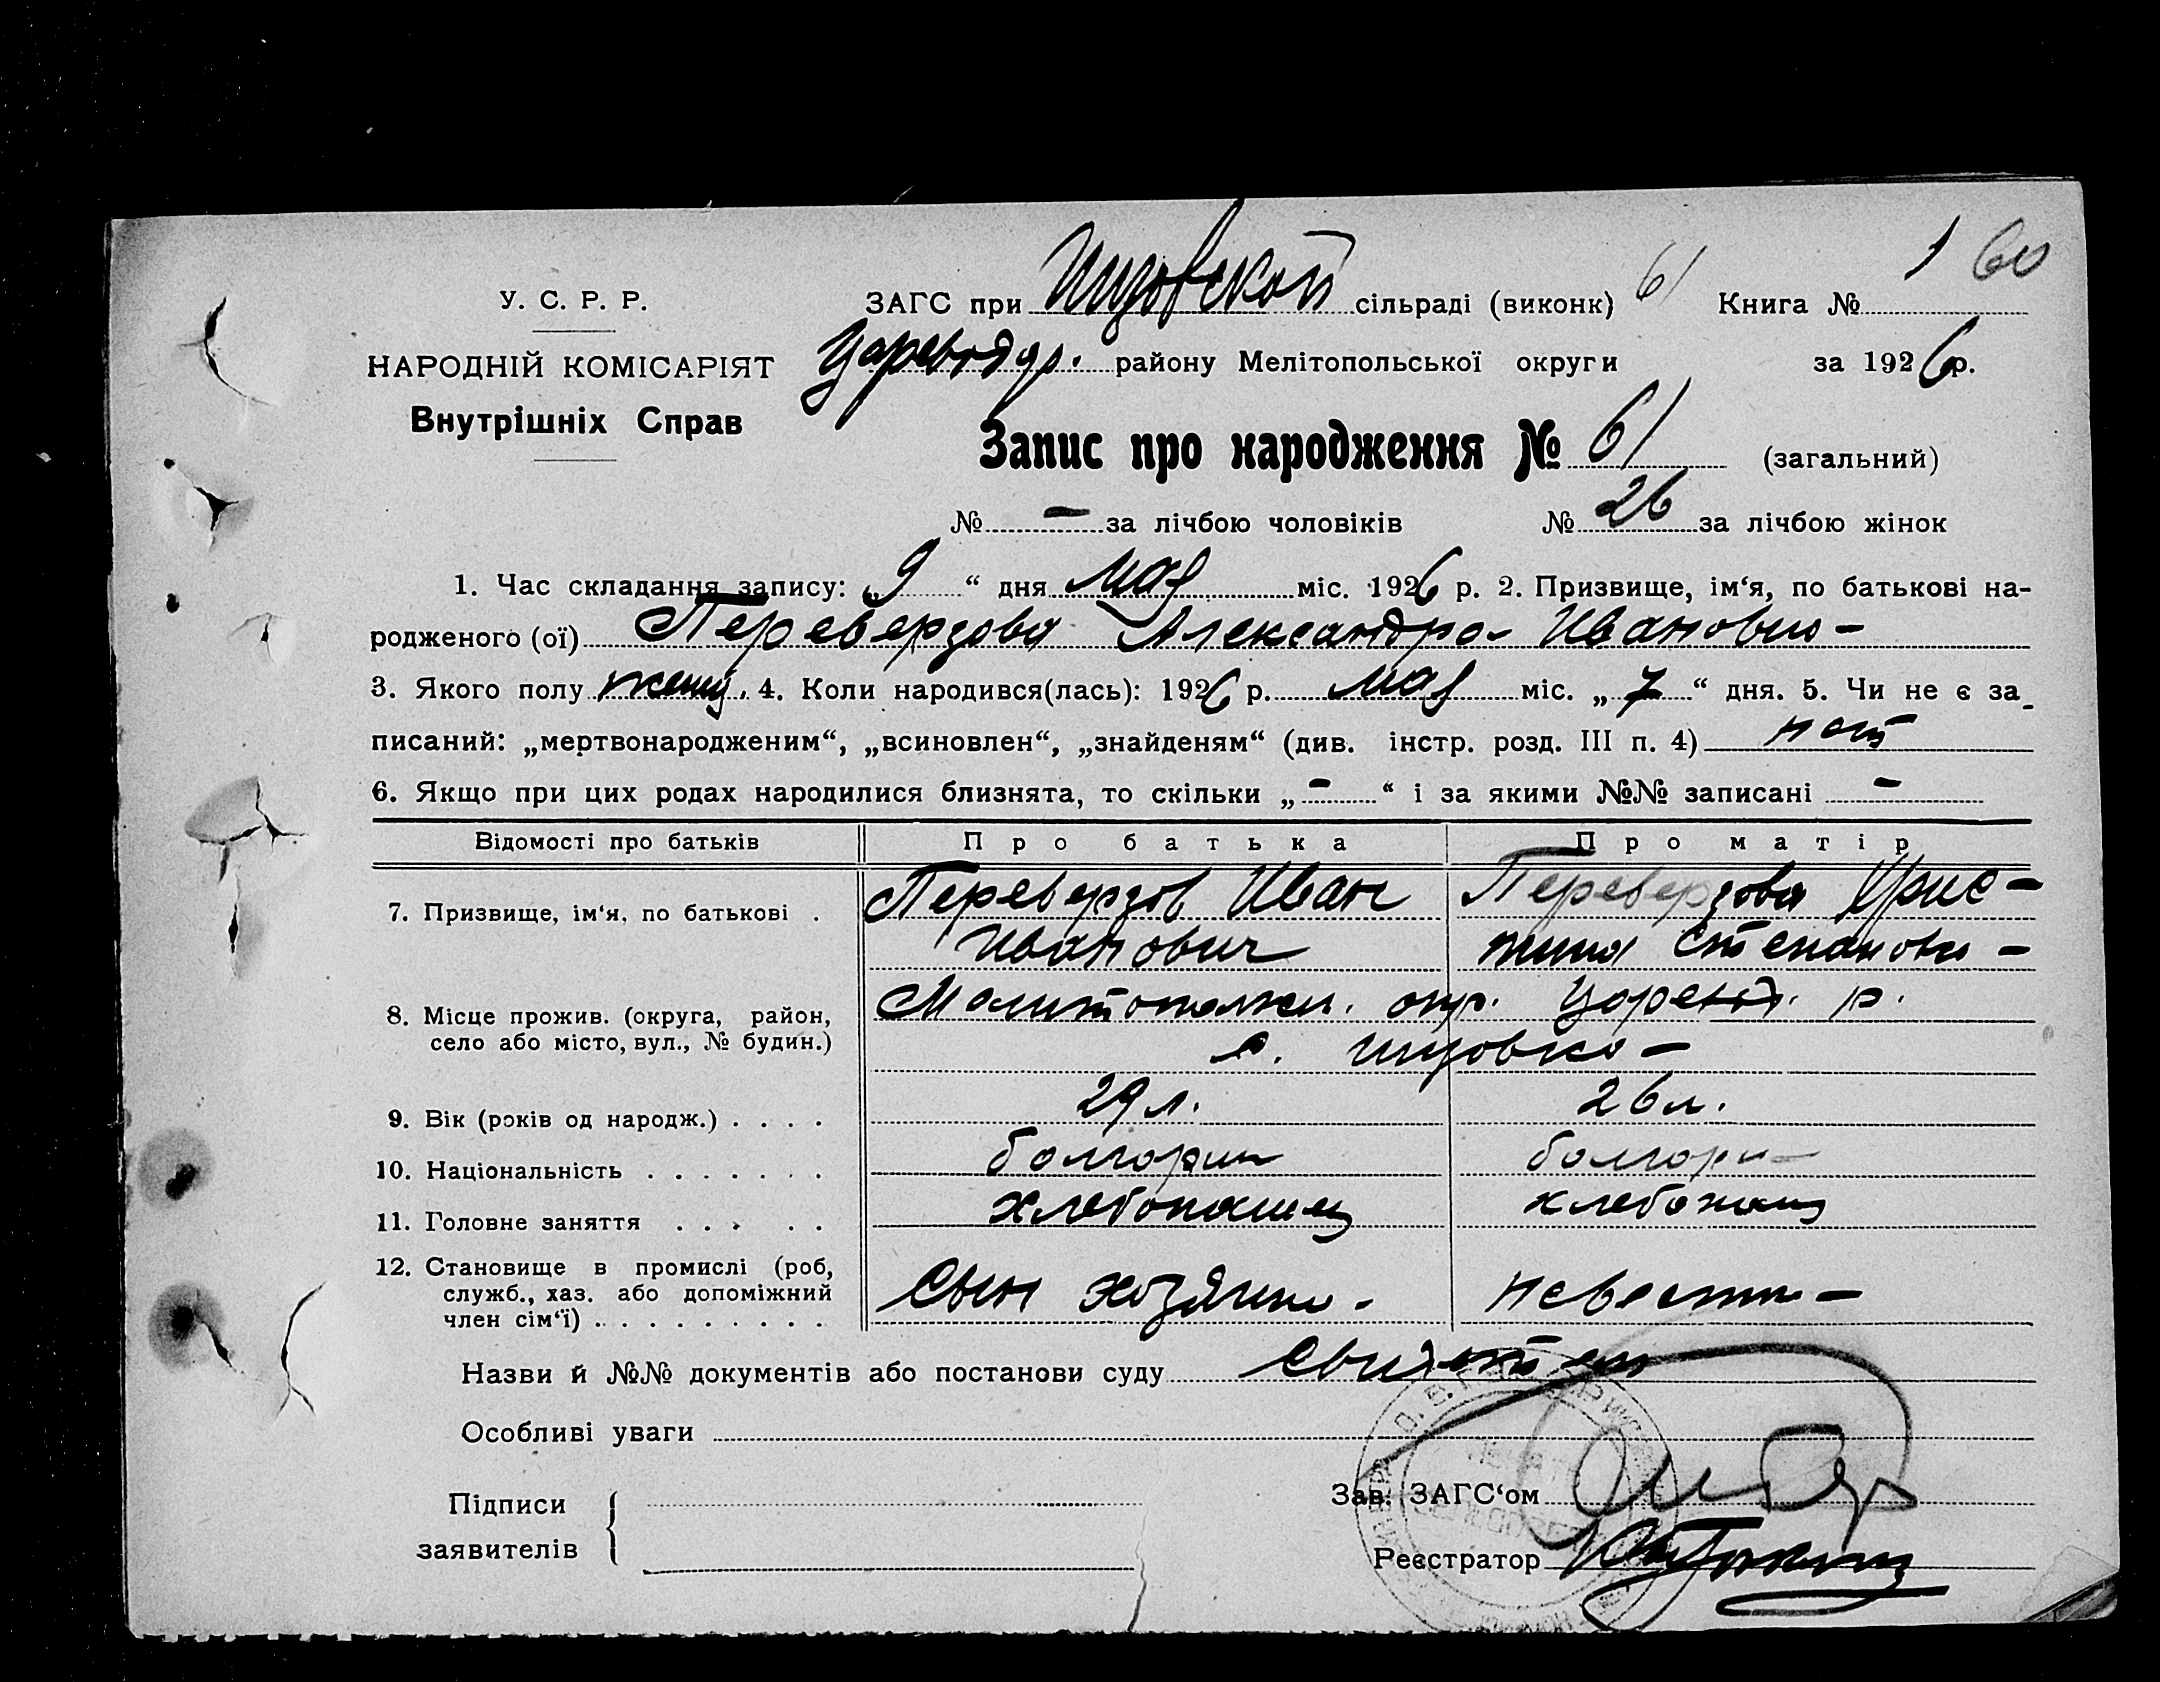 У. С. Р. Р.
НАРОДНІЙ КОМІСАРІЯТ
Внутрішніх Справ
ЗАГС при Инзовской сільраді (виконк) 61 Книга № 1 60
Цареводар. району Мелітопольської округи за 1926 р.
Запис про народження № 61 (загальний)
№ — за лічбою чоловіків № 26 за лічбою жінок
1. Час складання запису: „9“ дня мая міс. 1926 р. 2. Призвище, ім‘я, по батькові на-
родженого (ої) Перевёрзова Александра Ивановна
3. Якого полу женщ. 4. Коли народився(лась): 1926 р. мая міс. „7“ дня. 5. Чи не є за-
писаний: „мертвонародженим“, „всиновлен“, „знайденям“ (див. інстр. розд. III п. 4) нет
6. Якщо при цих родах народилися близнята, то скільки „—“ і за якими №№ записані —
Відомості про батьків Про батька Про матір
7. Призвище, ім‘я, по батькові . Переверзов Иван Переверзова Хрис-
Иванович тина Степанов
8. Місце прожив. (округа, район, Мелитопольск. окр. Царевод. р.
село або місто, вул., № будин.) с. Инзовка
9. Вік (років од народж.) . . . . 29 л. 26 л.
10. Національність . . . . . . . болгарин болгарк
11. Головне заняття . . . . . хлебопашец хлебопаш
12. Становище в промислі (роб,
служб., хаз. або допоміжний Сын хозяина невестка
член сім‘ї) . . . . . . . . .
Назви й №№ документів або постанови суду
Особливі уваги
Підписи
заявителів
Зав. ЗАГС‘ом
Реєстратор